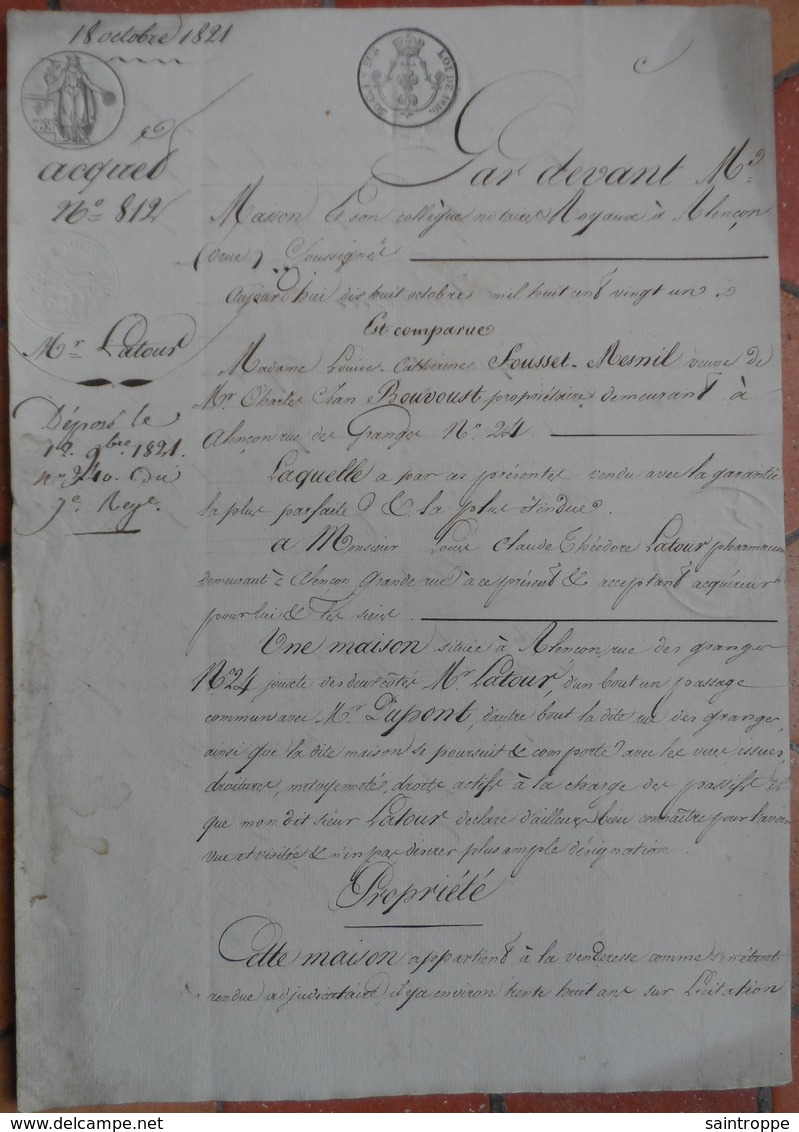 18 octobre 1821
acquet
N° 812
Mr Latour
Déposé le
12 9bre 1821.
n° 240 du
7e Regre.
Par devant Me
Masson & son collègue notaires Royaux à Alençon
(orne) Soussignés
aujourd'hui dix huit octobre mil huit cent vingt un
Est comparue
Madame Louise Catherine Sousset-Mesnil veuve de
Mr Charles Bouvoust propriétaire demeurant à
alençon rue des Granges N° 24.
Laquelle a par ces présentes vendu avec la garantie
la plus parfaite & la plus étendue
a Monsieur Louis Claude Théodore Latour pharmacien
demeurant à alençon Grande rue à ce présent & acceptant acquéreur
pour lui & les siens
Une maison située à Alençon, rue des granges
N° 24 joucte des deux côtés Mr Latour, d'un bout un passage
commun avec Mr Dupont, d'autre bout la dite rue des granges,
ainsi que la dite maison se poursuit & comporte avec les vues, issues,
droitures, mitoyennetés, droits actifs à la charge des passifs et
que mon dit sieur Latour déclare d'ailleurs bien connaître pour l'avoir
vue et visitée & n'en pas désirer plus ample désignation.
Propriété
Cette maison appartient à la venderesse comme s'en étant
rendue adjudicataire, il y a environ trente huit ans sur Licitation
saintroppe